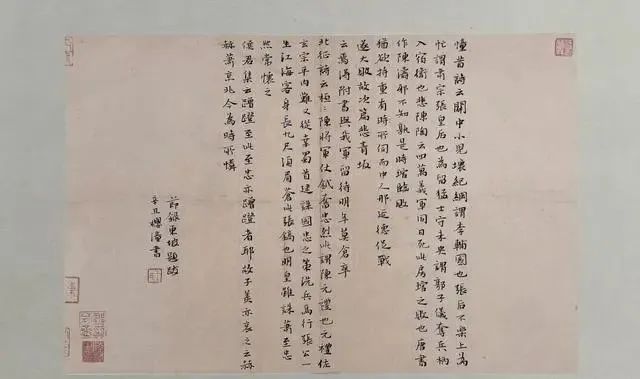 憶昔詩云關中小兒壞紀綱謂李輔國也張后不樂上為
忙謂肅宗張皇后也為留猛士守未央謂郭子儀奪兵柄
入宿衛也悲陳陶云四萬義軍同日死此房琯之敗也唐書
作陳濤邪不知孰是時琯臨敗
猶欲持重有時所伺而中人邢延德促戰
遂大敗故次篇悲青坂
云焉得附書與我軍留待明年莫倉卒
北征詩云桓桓陳將軍仗鉞奮忠烈此謂陳元禮也元禮佐
玄宗平內難又從幸蜀首建誅國忠之策洗兵馬行張公一
生江海客身長九尺鬚眉蒼此張鎬也明皇雖誅蕭至忠
然常懷之
侯君集云蹭蹬至此至忠亦蹭蹬者耶故子美亦哀之云赫
赫蕭京兆今為時所憐
節錄東坡題跋
辛丑書